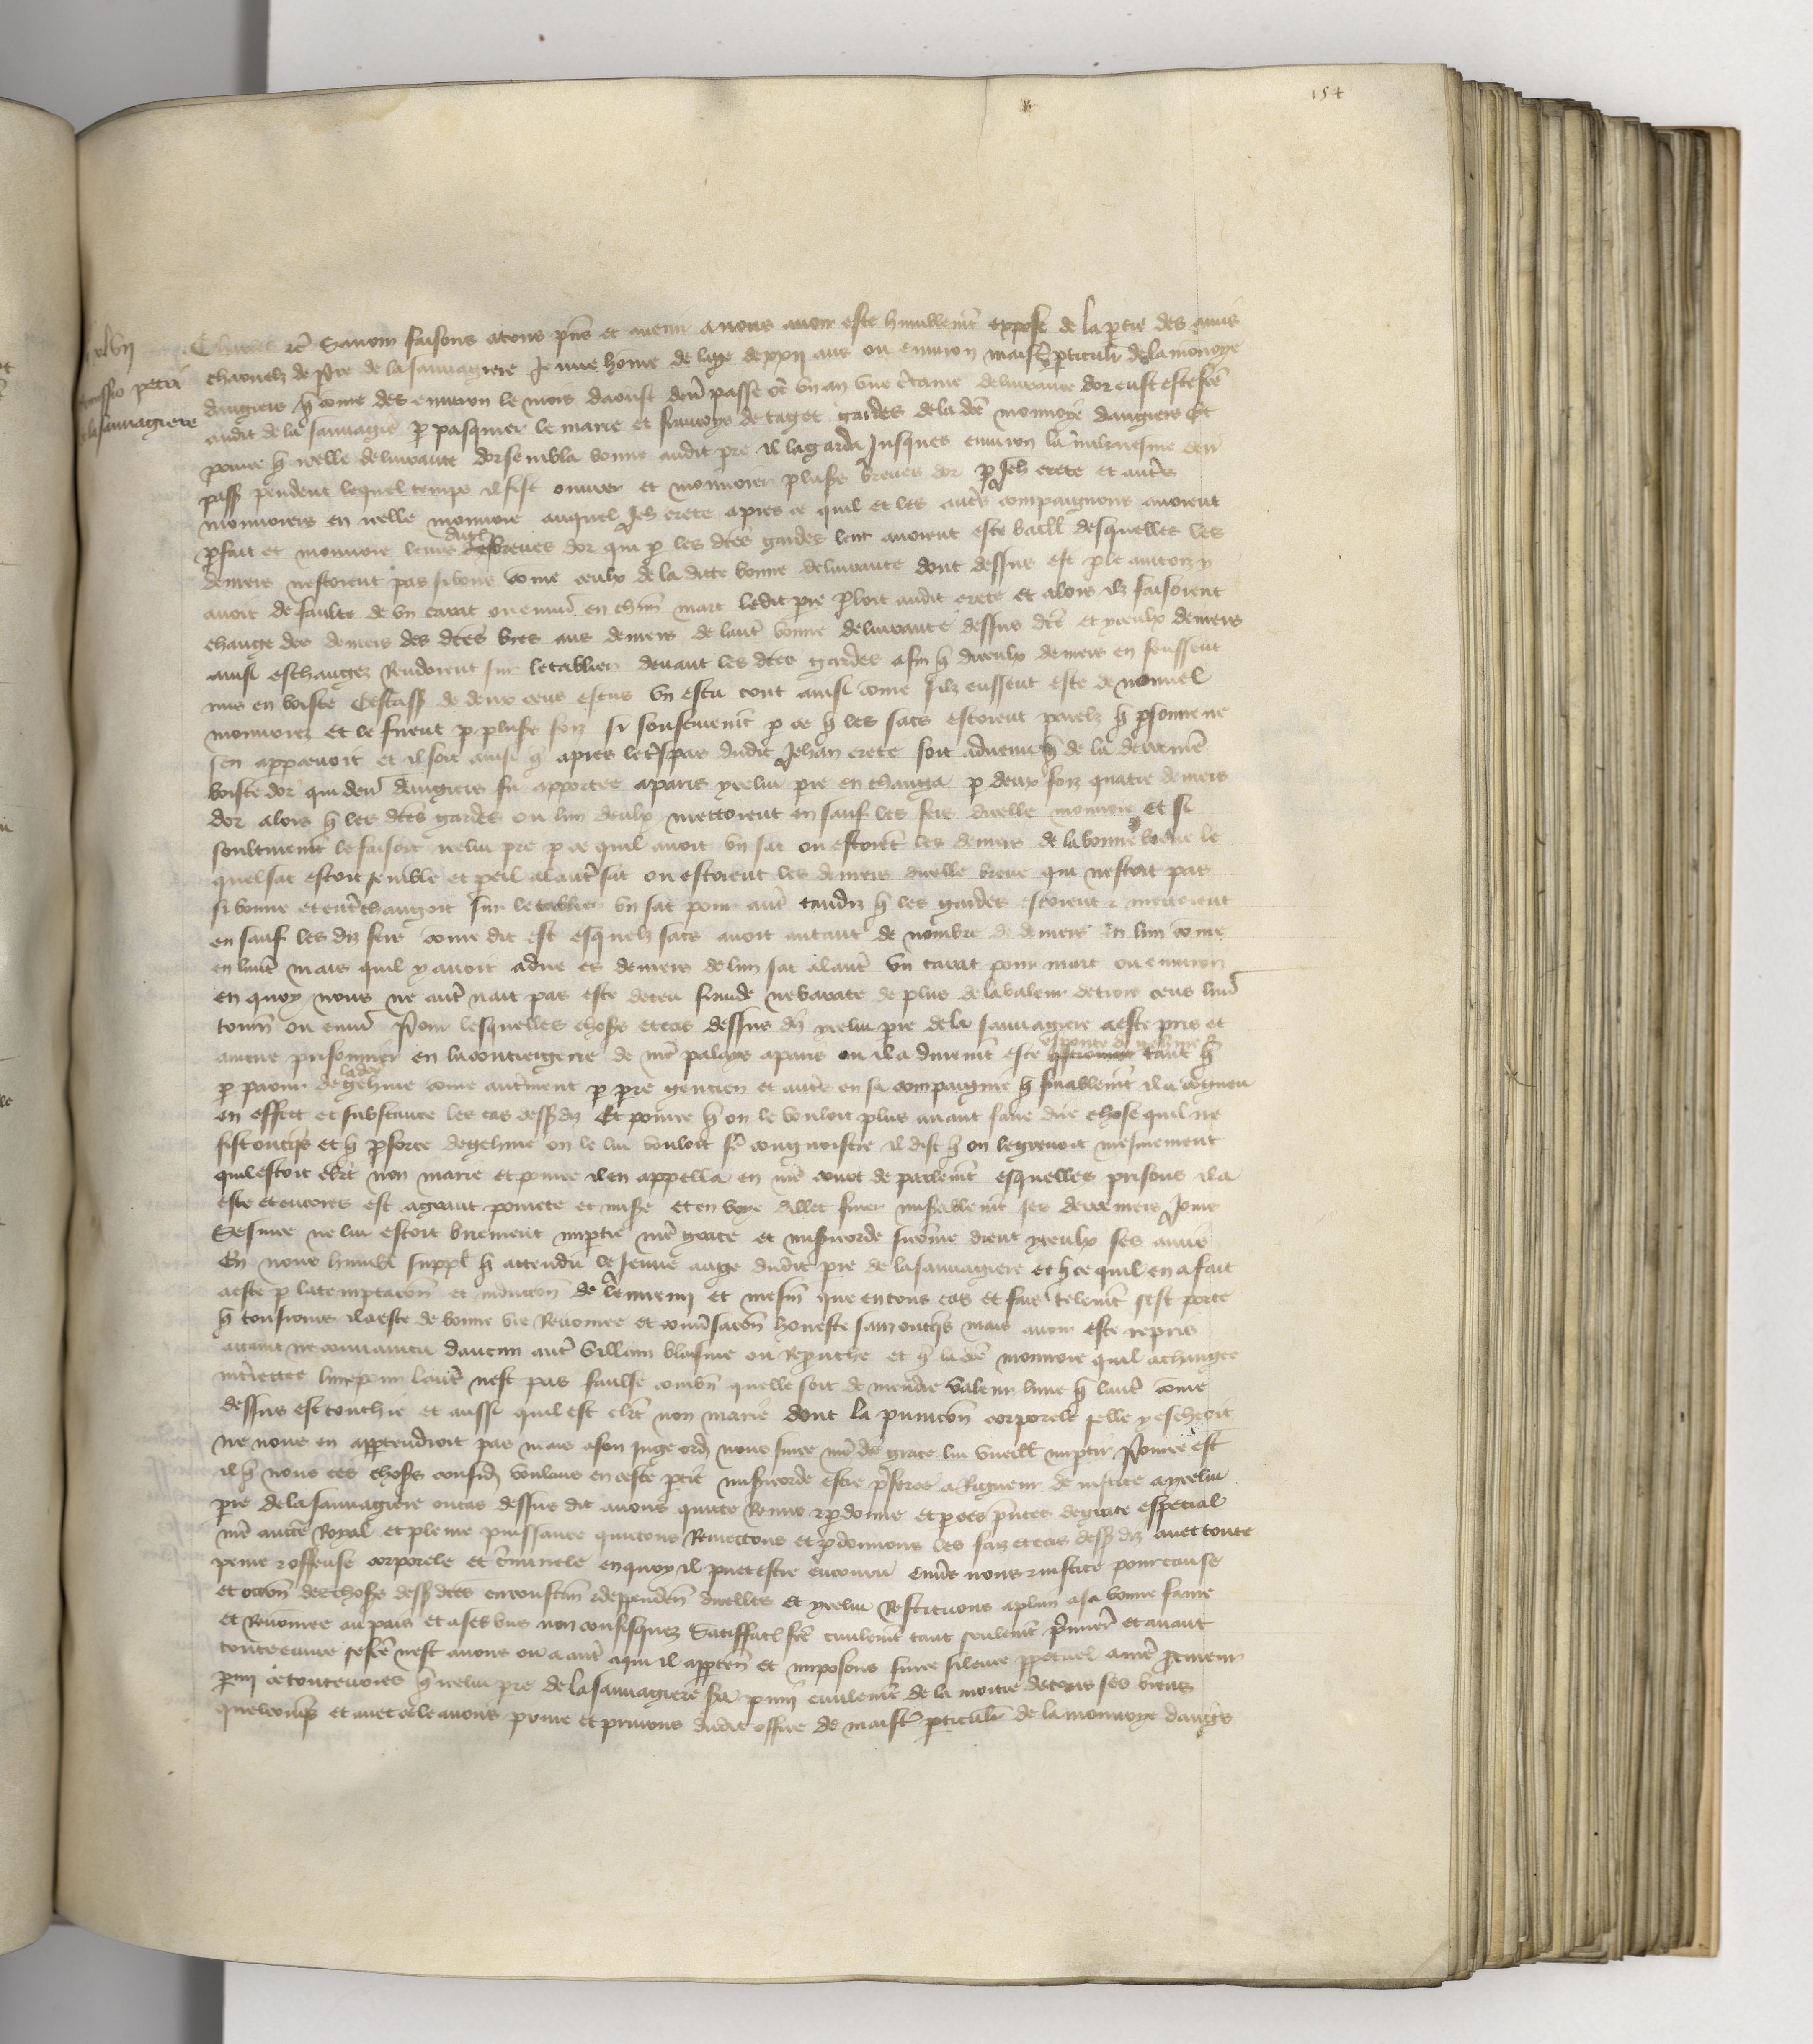 154
Charles etc Savoir faisons a tous pns et avenir a nous avoir este humblemt expose de la partie des amis
charnelz de Pre de la sauvagiere Jeune home de laage de xxii ans ou environ maistre pticulr de la monnoye
dangiers q come des environ le mois daoust derr passe ot un an une ctaine delivrance dor eust este fcte
audit de la sauvagre p pasquier le marie et francoys de taget gardes de la dce monnoye dangiers Et
pource q icelle delivrance dor sembla bonne audit pre il la garda Jusques environ la
pass pendent lequel temps il fist ouvrer et monnoier pluss breves dor p Jeh crete et autrs
monnoiers en icelle monnoie auquel Jeh crete apres ce quil et les autrs compaignons avoient
pfait et monnoie leurs dictes breves dor qui p les dces gardes leur avoient este baill desquelles les
deniers nestoient pas si bons come ceulx de la dicte bonne delivrance dont dessus est ple ancois y
avoit de faulte de un carat ou envir en chun marc ledit pre ploit audit crete et alors ilz faisoient
change des deniers des dces brves aus deniers de lautre bonne delivrance dessus dce et yceulx deniers
ainsi eschangez Rendoient sur le tablier devant les dces gardes afin q diceulx deniers en feussent
mis en boiste Cestass de deux cens escus un escu tout ainsi come silz eussent este de nouvel
monnoiez Et ce firent p pluss foiz si soutivemt p ce q les sacs estoient pareilz q psonne ne
sen appcevoit et il soit ainsi q apres le trespas dudit Jehan crete soit advenu q de la derreniere
boiste dor qui derr dangiers fu apportee a paris ycelui pre en changa p deux foiz quatre deniers
dor alors q les dces gardes ou lun deulx mettoient en sauf les fers dicelle monnoie Et si
soultivemt le faisoit icelui pre p ce quil avoit un sac ou estoiet les deniers de la bonne breve le
quel sac estoit semble et pareil a lautre sac ou estoient les deniers dicelle breve qui nestoit pas
si bonne et entrechangoit sur le tablier un sac pour autre tandiz q les gardes estoient et mettoient
en sauf les diz fers come dit est esquelz sacs avoit autant de nombre de deniers en lun come
en lautre mais quil y avoit a dire es deniers de lun sac a lautre un carat pour marc ou environ
en quoy nous ne autre nait pas este deceu fraude ne barate de plus de la valeur de trois cens livr
tourn ou envir Pour lesquelles choses et cas dessus diz ycelui pre de la sauvagiere a este pris et
amene prisonnier en la conciergerie de nre palays a paris ou il a durement este tant q
p paour de la dce gehine come autrement p pre gencien et autrs en sa compaignie q finablemt il a cogneu
en effect et substance les cas dess diz Et pource q on le vouloit plus avant faire dire chose quil ne
fist oncqs et q pforce de gehine on le lui vouloit fe congnoistre il dist q on le grevoit mesmement
quil estoit clerc non marie et pource il en appella en nre court de parlemt esquelles prisons il a
este et encores est a grant povrete et misere et en voye daller finer miserablemt ses derreniers Jours
Se sur ce ne lui estoit briefment imptie nre grace et misericorde si come dient yceulx ses amis
En nous humbl suppl q attendu le Jeune aage dudit pre de la sauvagiere et q ce quil en a fait
a este p la temptacon et induccon de lennemi et mesm que en tous cas et fais telemt sest porte
q tousjours il a este de bonne vie Renomee et conversacon honeste sanz oncqs mais avoir este repris
attaint ne convaincu daucun autre villain blasme ou Reprouche et q la dce monnoie quil a changee
et mectre lune pour lautre nest pas faulse combn quelle soit de mendre valeur lune q lautre come
dessus est touchie et aussi quil est clerc non marie dont la punicon corporele selle y escheoit
ne nous en apptendroit pas mais a son Juge ord nous sur ce nre dce grace lui vueill imptir Pource est
il q nous ces choses consid voulans en ceste ptie misericorde estre pferee a Rigueur de justice a ycelui
pre de la sauvagiere ou cas dessus dit avons quicte Remis et pdonne et p ces pntes de grace especial
nre aucte Royal et pleine puissance quictons Remectons et pdonnons les faiz et cas dess diz avec toute
peine et offense corporele et criminele en quoy il puet estre encouru envrs nous et justice pour cause
et occon des choses dess dces circonstan et dependen dicelles et ycelui Restituons a plain a sa bonne fame
et Renomee au pais et a ses bns non confisquez Satiffaccon fce civilemt tant seulemt premier et avant
toute euvre se fce nest avons ou a autre a qui il apptien et imposons sur ce silence ppetuel a nre procureur
pmi ce toutevoies q icelui pre de la sauvagiere sera pugni civilemt de la moitie de tous ses biens
quelconqs et avec ce le avons prive et privons dudit office de maistre pticulr de la monnoye dangrs
xlvii
remissio petri
de la sauvagiere